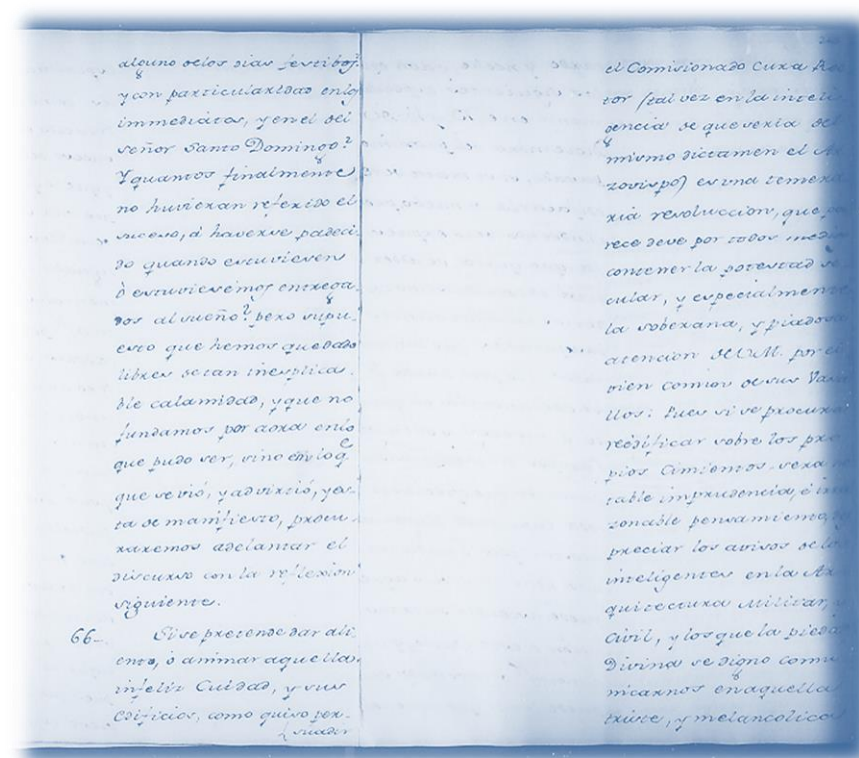 alguno de los dias festibos?
y con particularidad en los
immediàtos, y en el del
señor Santo Domingo?
Y quantos finalmente
no huvieran referido el
suceso, á haverse padeci-
do quando estuviesens
ò estuviesemos entrega-
dos al sueño? pero supu-
esto que hemos quedado
libres de tan inexplica-
ble calamidad, y que no
fundamos por aora en lo
que pudo ser, sino en lo q̃
que se vió, y advirtió, y es-
ta de manifiesto, procu-
raremos adelantar el
discurso con la reflexion
siguiente.
66- Si se pretende dar ali-
ento, ò animar aquella
infeliz Cuidad, y sus
Edificios, como quiso per-
suadir
el Comisionado Cura Rec-
tor (tal vez en la inteli-
gencia de que seria del
mismo dictamen el Ar-
zovispo) es una temera-
ria revoluccion, que pa-
rece deve por todos medios
contener la potestad se-
cular, y especialmente
la soberana, y piadosa
atencion de V.M. por el
vien comun de sus Vasa-
llos: Pues si se procura
reedificar sobre los pro-
pios Cimientos, sera no-
table imprudencia, è irra-
zonable pensamiento, des-
preciar los avisos de los
inteligentes en la Ar-
quitectura Militar, y
Civil, y los que la piedad
Divina se digno comu-
nicarnos en aquella
triste, y melancolica